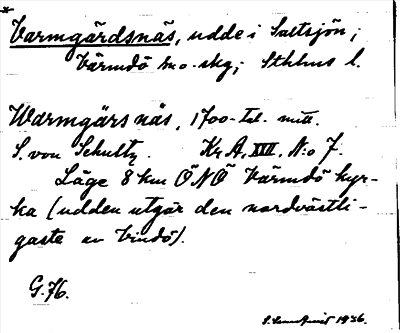 Varmgärdsnäs, udde i Saltsjön;
Värmdö sn o. skg; Sthlms l.
Warmgärs näs, 1700-tal. mitt.
S. von Schultz. Kr A, XVII, N:o 7.
Läge 8 km ÖNÖ Värmdö kyr-
ka (udden utgör den nordvästli-
gaste av Vindö).
G. 76.
1936.